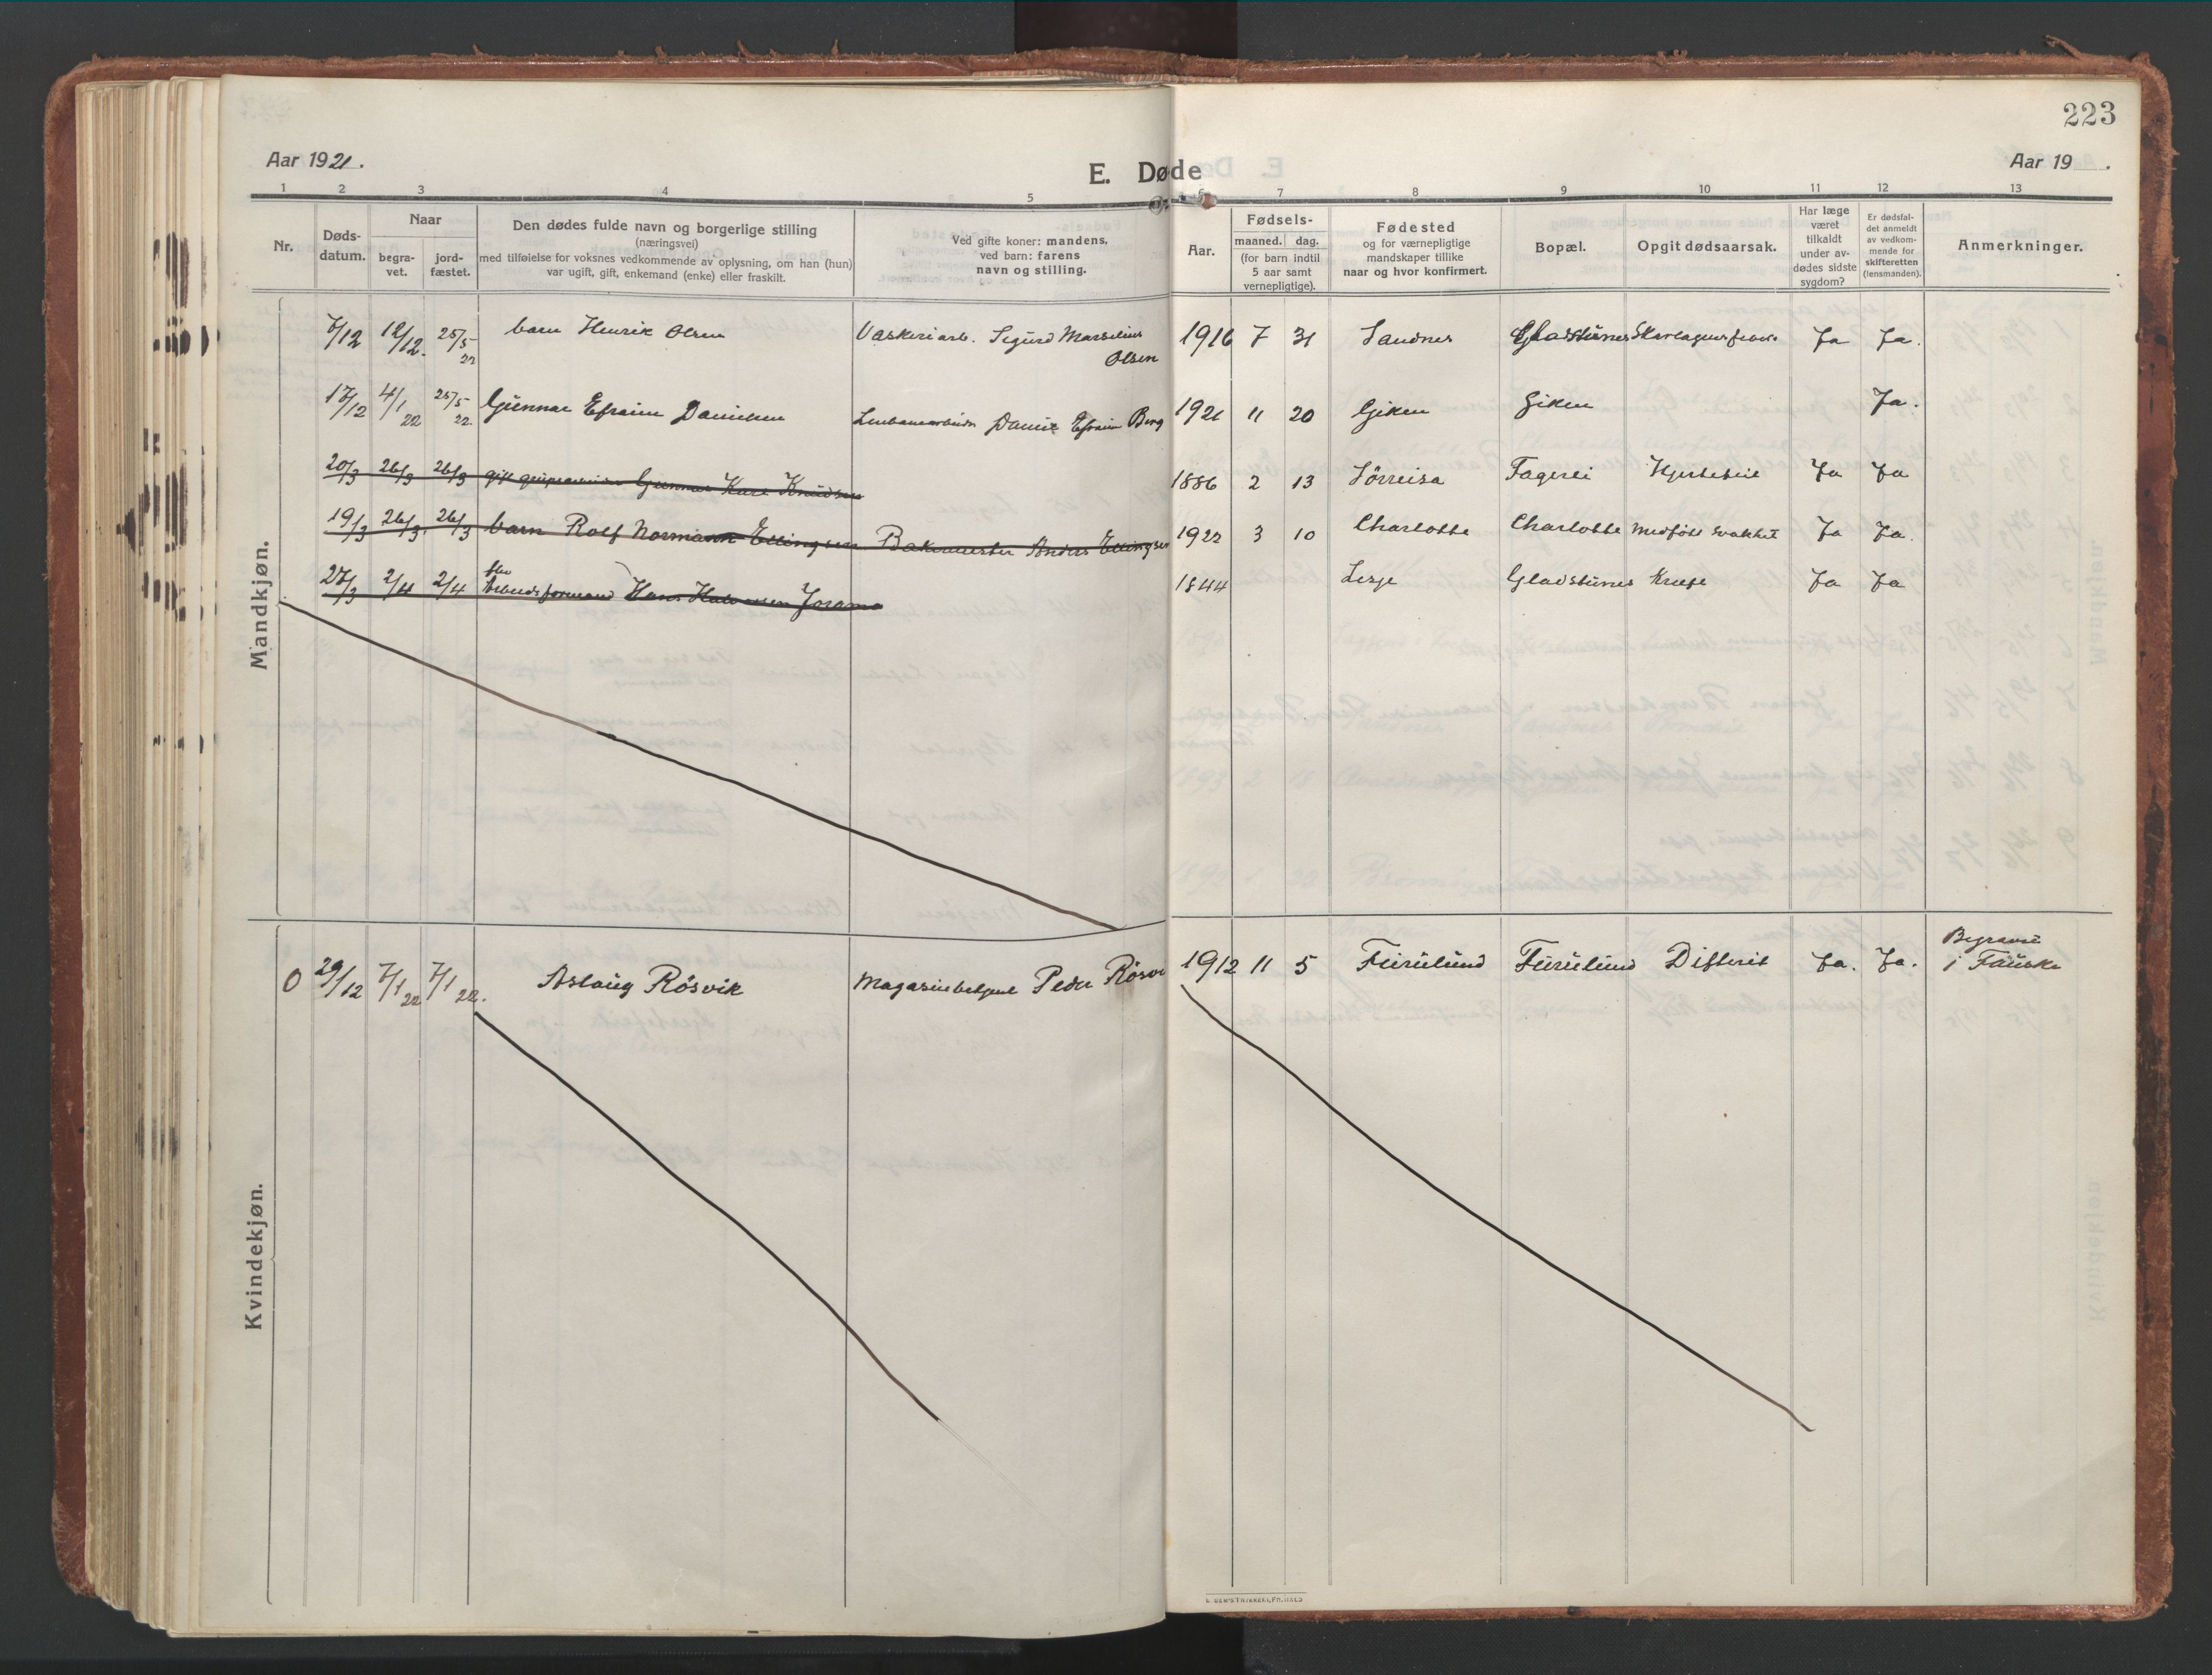 223
Aar 1921.
E. Døde
Aar 19 .
1 2 3 4 5 6 7 8 9 10 11 12 13
Nr.
Døds-
datum.
Naar
begra-
vet.
jord-
fæstet.
Den dødes fulde navn og borgerlige stilling
(næringsvei)
med tilføielse for voksnes vedkommende av oplysning, om han (hun)
var ugift, gift, enkemand (enke) eller fraskilt.
Ved gifte koner: mandens,
ved barn: farens
navn og stilling.
Aar.
Fødsels-
maaned. dag.
(for barn indtil
5 aar samt
vernepligtige).
Fødested
og for værnepligtige
mandskaper tillike
naar og hvor konfirmert.
Bopæl.
Opgit dødsaarsak.
Har læge
været
tilkaldt
under av-
dødes sidste
sygdom?
Er dødsfal-
det anmeldt
av vedkom-
mende for
skifteretten
(lensmanden).
Anmerkninger.
Mandkjøn.
7/12 12/12. 25/5 22 barn Henrik Olsen Vaskeriarb. Sigurd Marselius Olsen 1916 7 31 Sandnes Gladstunes Skarlagensfeber Ja Ja.
17/12 4/1 22 25/5 22. Gunnar Efraim Danielsen Daniel Efraim Berg 1921 11 20 Giken Giken Ja.
20/3 26/3 26/3 gift Gunnar Kare Knudsen 1886 2 13 Sörreisa Fagerli Hjertefeil Ja Ja
19/3 26/3. 26/3 barn Rolf Normann Ellingsen Bakermester Anders Ellingsen 1922 3 10 Charlotte Charlotte Medfödt svakhet Ja Ja.
27/3 2/4 2/4 Arbeidsformand Hans Halvorsen Joramo 1844 Lesje Gladstunes Kræft Ja Ja
Kvindekjøn.
0 29/12 7/1 22 7/1 22. Aslaug Rösvik Magasinbetjent Peder Rösvi 1912 11 5 Furulund Furulund Difterit Ja. Ja. Begravet
i Fauske